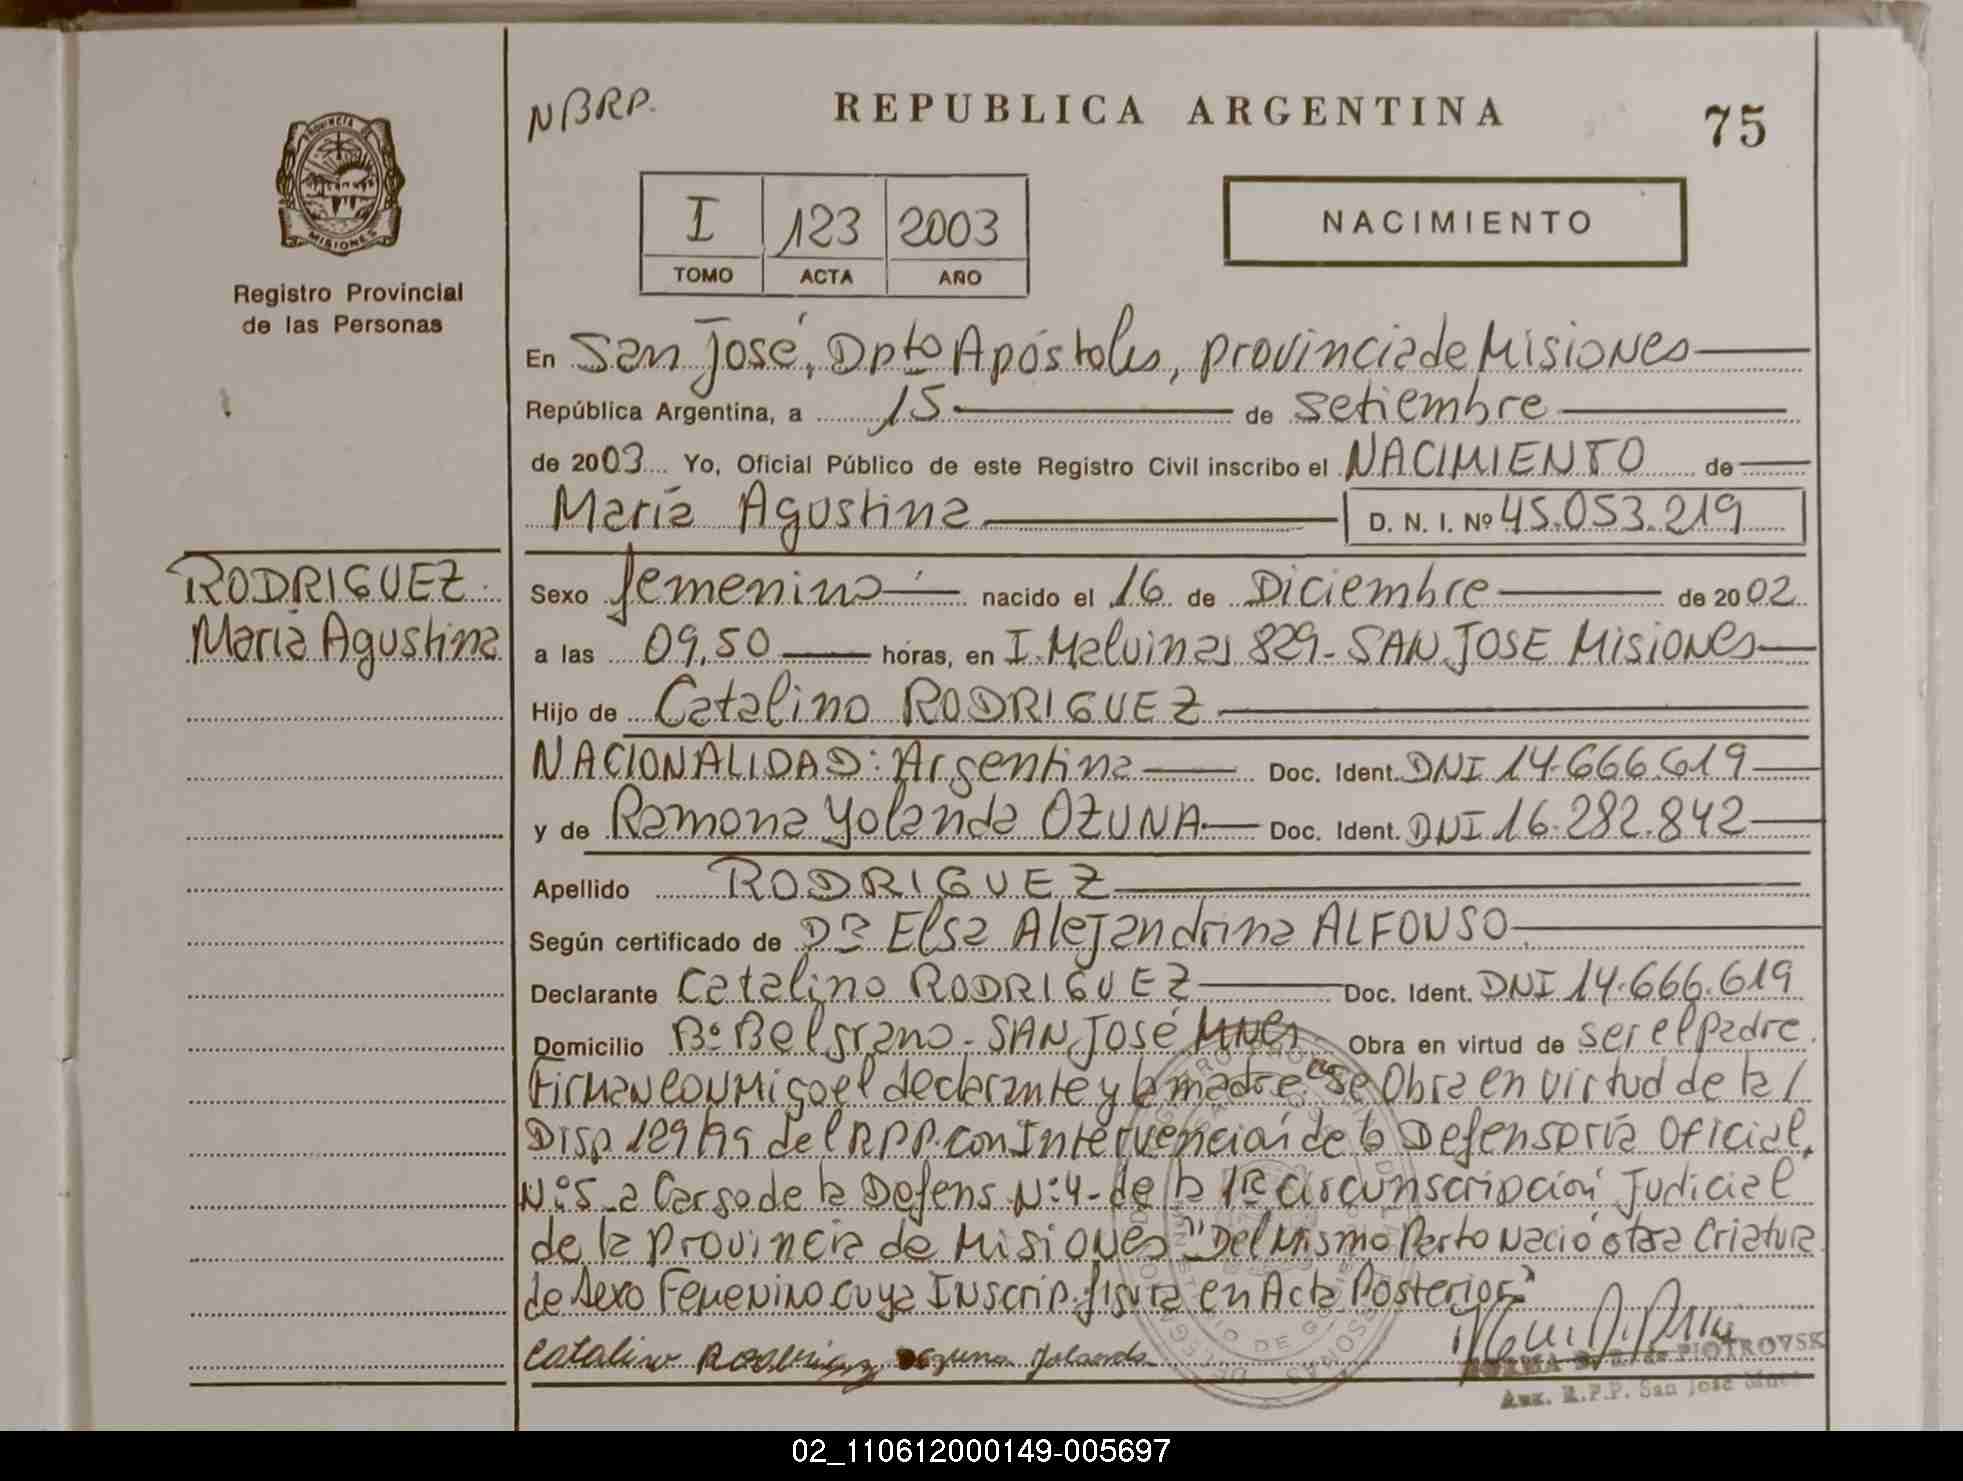 PROVINCIA DE
MISIONES
Registro Provincial
de las Personas
RODRIGUEZ
María Agustina
NBRP.
REPUBLICA ARGENTINA
75
I 123 2003
TOMO ACTA AÑO
NACIMIENTO
En San José, Dpto Apóstoles, provincia de Misiones
República Argentina, a 15 de setiembre
de 2003 Yo, Oficial Público de este Registro Civil inscribo el NACIMIENTO de
María Agustina D. N. I. Nº 45.053.219
Sexo femenino nacido el 16 de Diciembre de 2002
a las 09,50 horas, en I. Malvinas 829 - SAN JOSE Misiones
Hijo de Catalino RODRIGUEZ
NACIONALIDAD: Argentina Doc. Ident. DNI 14.666.619
y de Ramona Yolanda OZUNA Doc. Ident. DNI 16.282.842
Apellido RODRIGUEZ
Según certificado de Dra Elsa Alejandrina ALFONSO
Declarante Catalino RODRIGUEZ Doc. Ident. DNI 14.666.619
Domicilio Bº Belgrano - SAN JOSÉ MNES Obra en virtud de ser el padre.
Firman conmigo el declarante y la madre "Se Obra en virtud de la /
Disp 129/99 del RPP. con Intervención de la Defensoría Oficial,
Nº 5 a Cargo de la Defens. Nº 4 - de la 1ra circunscripción Judicial
de la provincia de Misiones "Del Mismo Parto Nació otra Criatura
de Sexo Femenino cuya Inscrip. figura en Acta Posterior"
Catalino Rodriguez Yolanda
PIOTROVSK
Aux. R.P.P. San José
02_110612000149-005697